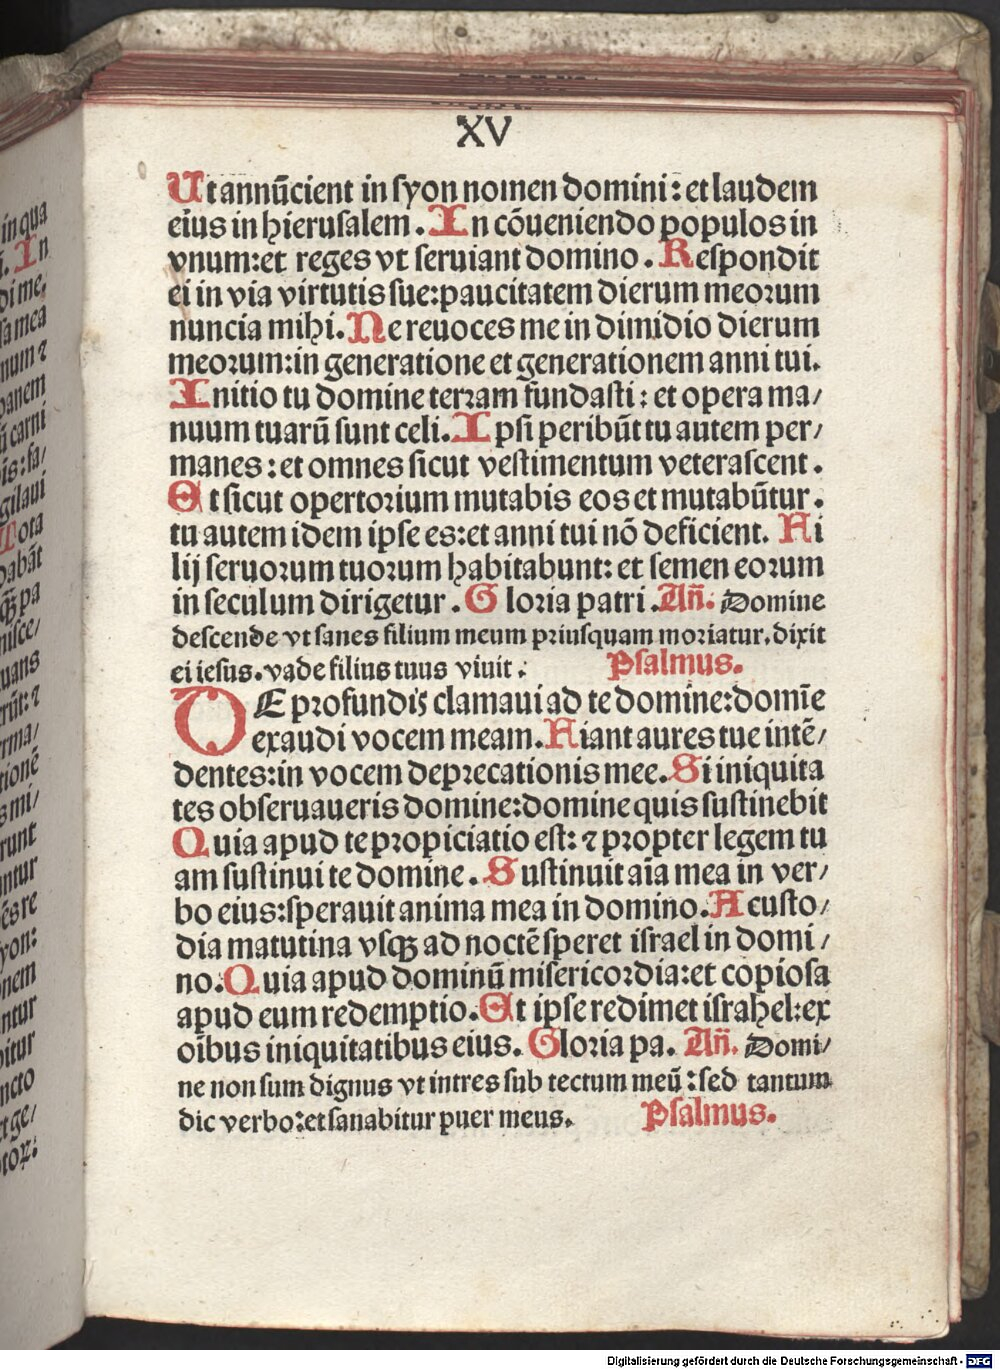 XV
Ut annūcient in syon nomen domini: et laudem
eius in hierusalem. In cōueniendo populos in
vnum: et reges vt seruiant domino. Respondit
ei in via virtutis sue: paucitatem dierum meorum
nuncia mihi. Ne reuoces me in dimidio dierum
meorum: in generatione et generationem anni tui.
Initio tu domine terram fundasti: et opera ma/
nuum tuarū sunt celi. Ipsi peribūt tu autem per/
manes: et omnes sicut vestimentum veterascent.
Et sicut opertorium mutabis eos et mutabūtur.
tu autem idem ipse es: et anni tui nō deficient. Fi
lij seruorum tuorum habitabunt: et semen eorum
in seculum dirigetur. Gloria patri. Añ. Domine
descende vt sanes filium meum priusquam moriatur. dixit
ei iesus. vade filius tuus viuit: Psalmus.
DE profundis clamaui ad te domine: domīe
exaudi vocem meam. Fiant aures tue intē/
dentes: in vocem deprecationis mee. Si iniquita
tes obseruaueris domine: domine quis sustinebit
Quia apud te propiciatio est: ⁊ propter legem tu
am sustinui te domine. Sustinuit aīa mea in ver/
bo eius: sperauit anima mea in domino. A custo/
dia matutina vsqꝫ ad noctē speret israel in domi/
no. Quia apud dominū misericordia: et copiosa
apud eum redemptio. Et ipse redimet israhel: ex
oībus iniquitatibus eius. Gloria pa. Añ. Domi/
ne non sum dignus vt intres sub tectum meū: sed tantum
dic verbo: et sanabitur puer meus. Psalmus.
in qua
In
di me.
sa mea
num ⁊
panem
ū carni
is: fa/
gilaui
Tota
pabāt
qꝫ pa
nisce/
uans
rūt: ⁊
rma/
tionē
s mi/
runt
ntur
ēs re
yon:
nem
ntur
bitur
ncto
t ge/
Digitalisierung gefördert durch die Deutsche Forschungsgemeinschaft - DFG